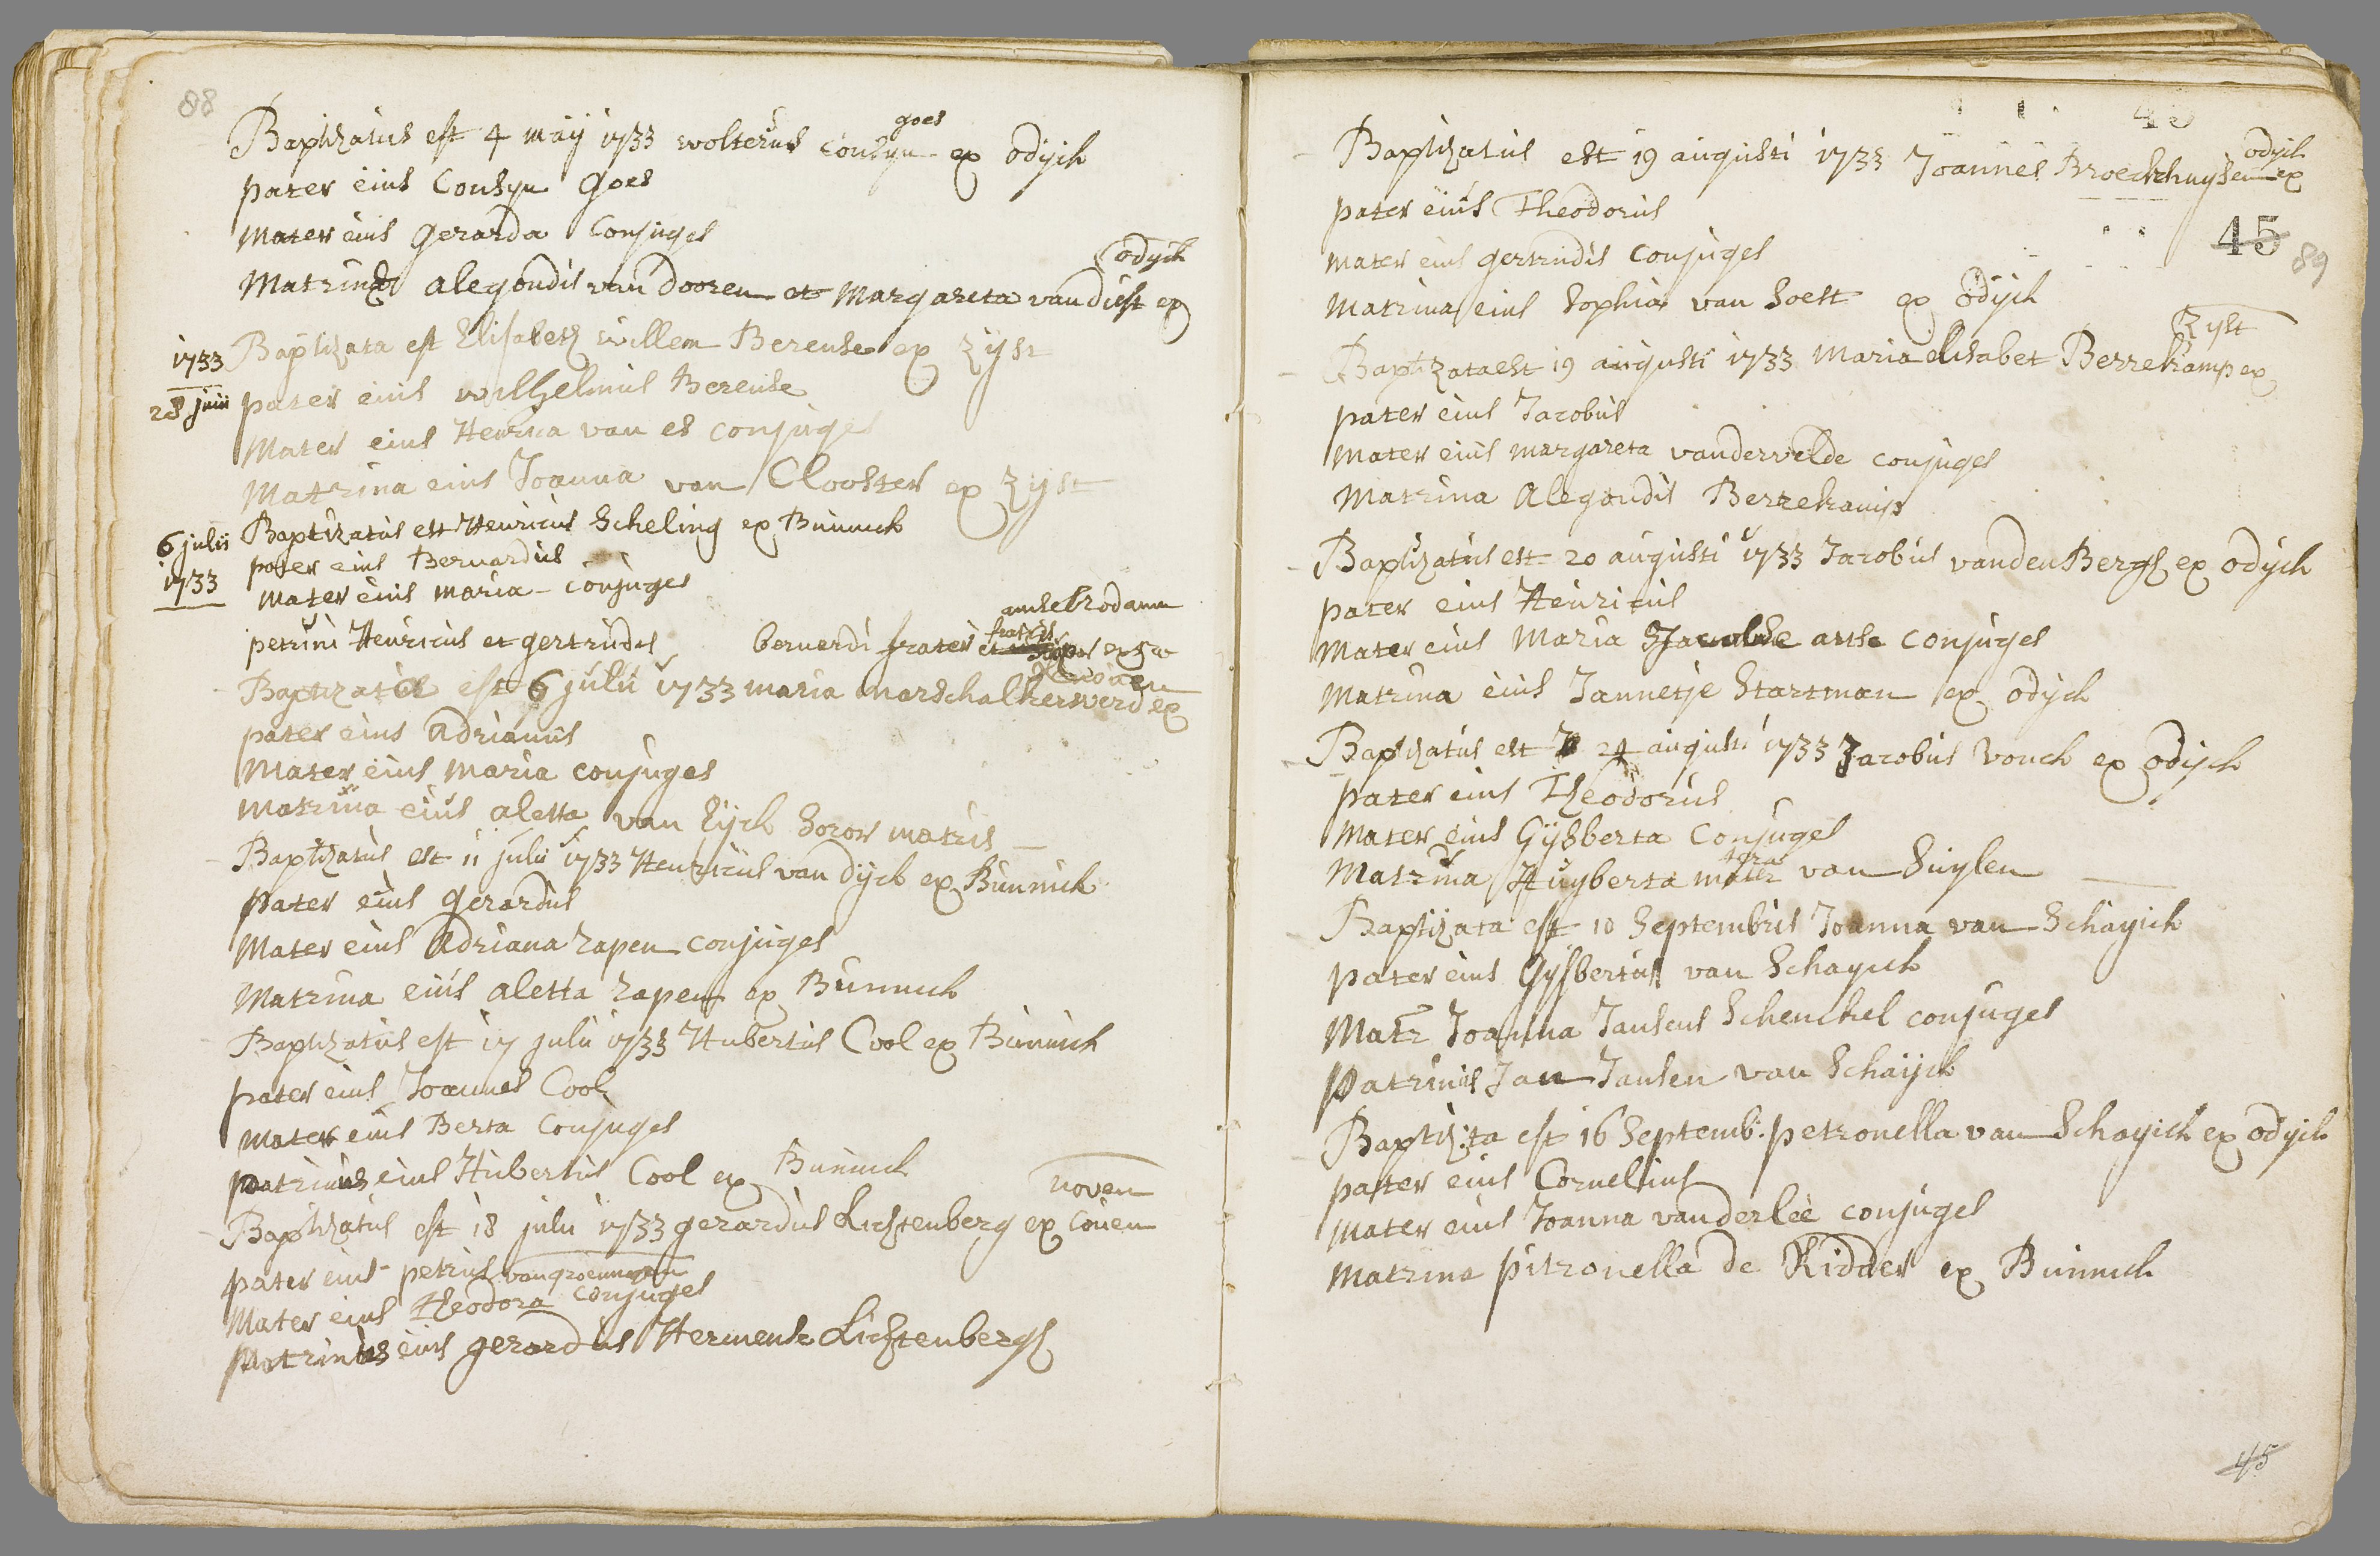 88
goes
Baptizatus est 4 maij 1733 wolterus Consyn ex odijck
pater eius Consyn Goes
Mater eius Gerarda Conjuges
odijck
Matrinæ alegondis van Dooren et Margareta van diest ex
1733 Baptizata est Elisabeth willem Berense ex Zijst
28 junii pater eius wilhelmus Berense
Mater eius Henrica van es conjuges
Matrina eius Joanna van Clooster ex Zijst
6 julii Baptizatus est Henricus Scheling ex Bunnick
1733 pater eius Bernardus
Mater eius maria conjuges
petrini Henricus et gertrudis bernerdi frater et
fratris
Baptizata est 6 julii 1733 maria marschalkerwerd ex
pater eius Adrianus
Mater eius maria conjuges
matrina eius aletta van Eijck soror matris
Baptizatus est 11 julii 1733 Henricus van dijck ex Bunnick
pater eius Gerardus
Mater eius Adriana rapen conjuges
Matrina eius aletta rapen ex Bunnick
Baptizatus est 17 julii 1733 Hubertus Cool ex Bunnick
pater eius Joannes Cool
Mater eius Berta Conjuges
patrinus eius Hubertus Cool ex Bunnick
noven
Baptizatus est 18 julii 1733 gerardus Lichtenberg ex Coüen
pater eius petrus
Mater eius theodora conjuges
patrinus eius gerardus Hermense Lichtenbergh
45
odijck
Baptizatus est 19 augusti 1733 Joannes Broeckhuijsen ex
pater eius Theodorus
45
89
mater eius gertrudis conjuges
Matrina eius Sophia van Soest ex odijck
Zijst
Baptizata est 19 augusti 1733 Maria elisabet Berrekamp ex
pater eius Jacobus
Mater eius margareta vandervelde conjuges
Matrina Alegondis Berrekamp
Baptizatus est 20 augusti 1733 Jacobus vanden Bergh ex odijck
pater eius Henricus
Mater eius Maria conjuges
Matrina eius Jannetje Startman ex odijck
Baptizatus est 24 augusti 1733 Jacobus Vonck ex odijck
pater eius Theodorus
Mater eius Gijsberta Conjuges
Matrina Huyberta van Suylen
Baptizata est 10 Septembris Joanna van Schayick
pater eius Gijsbertus van Schayick
Matr Joanna Jansens Schenckel conjuges
Patrinus Jan Jansen van Schaijck
Baptiz:ta est 16 Septemb. petronella van Schayick ex odijck
pater eius Cornelius
Mater eius Joanna vanderlee conjuges
Matrina pitronella de Ridder ex Bunnick
45